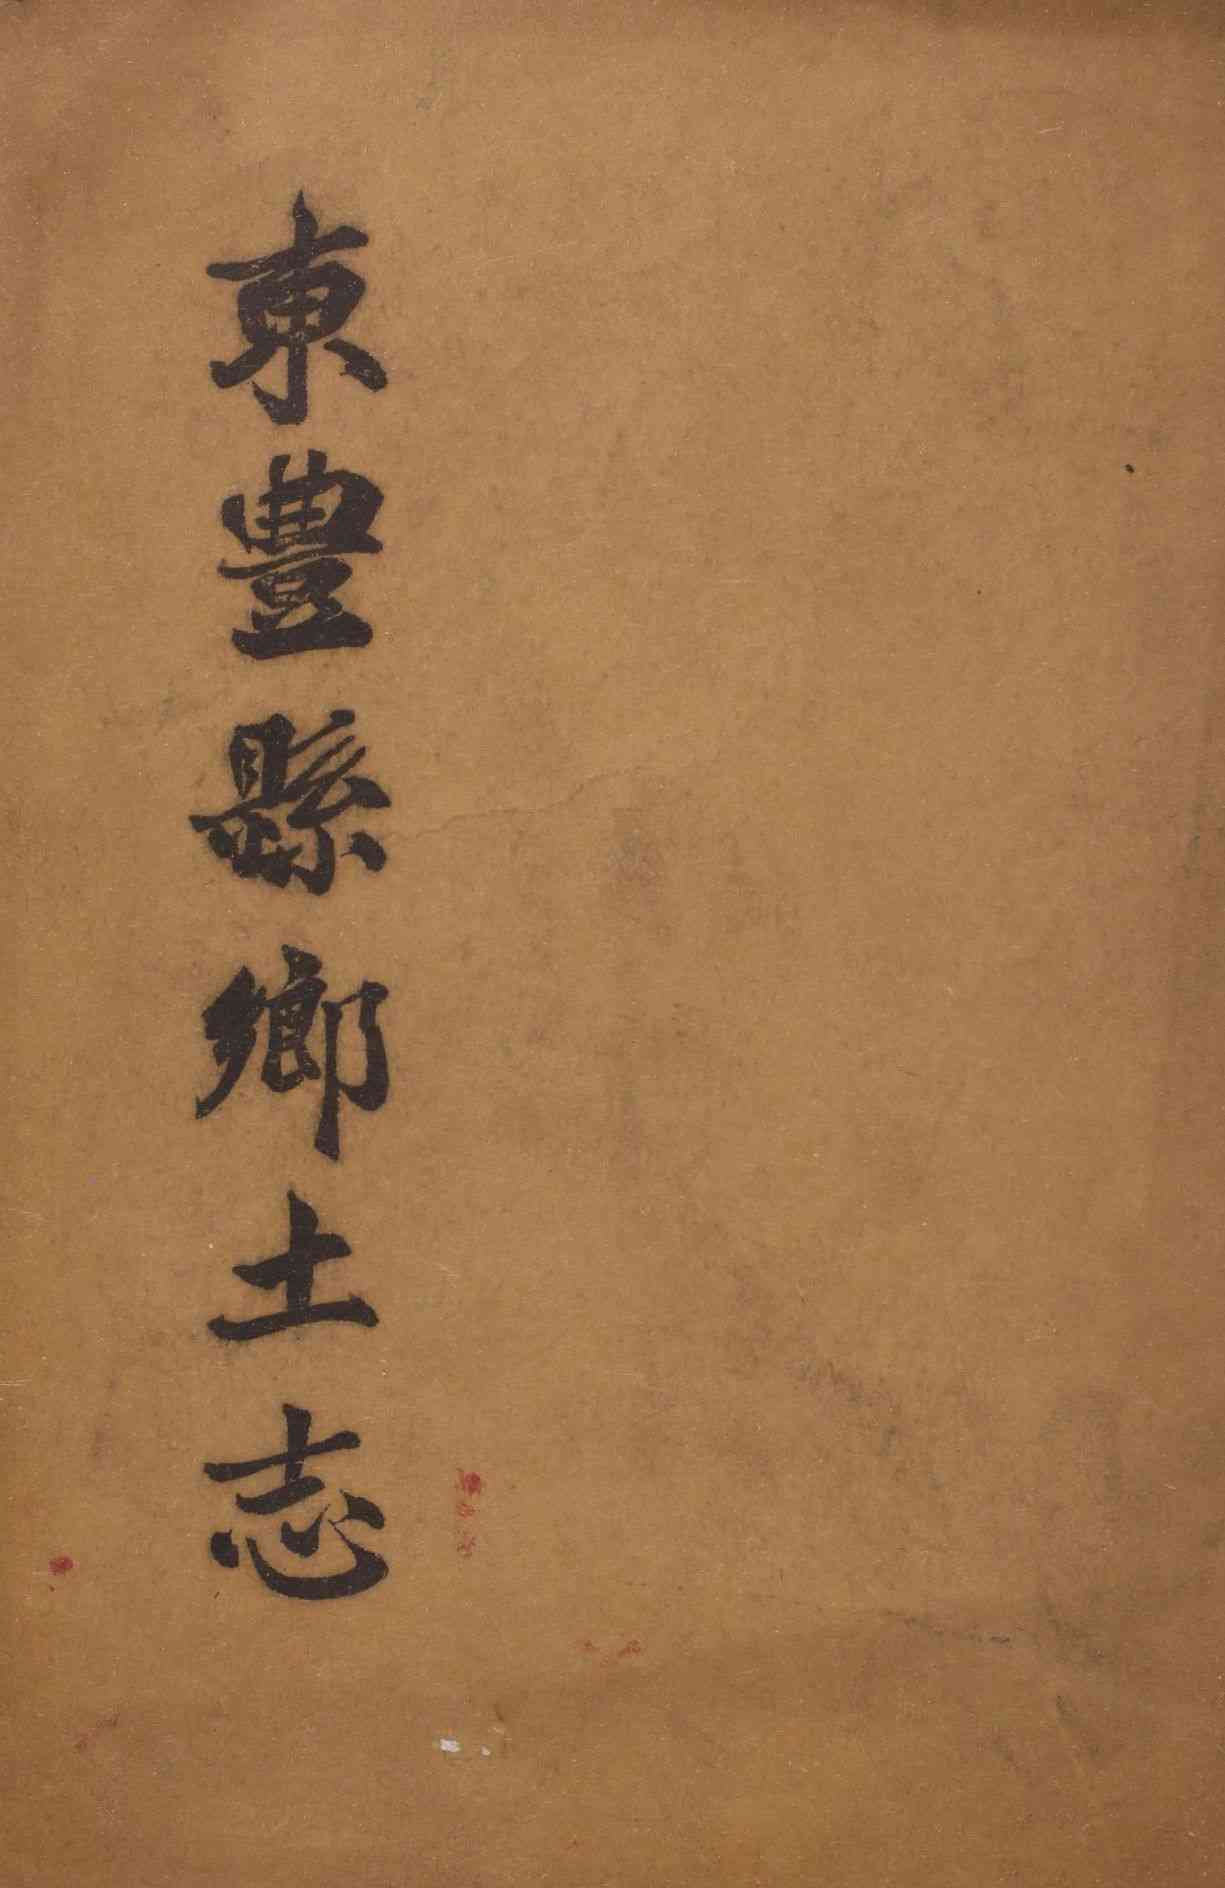 東豐縣鄉土志